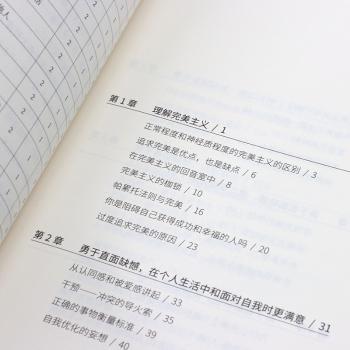 活
他人
2
2
2
2
2
2
2
第 1 章 理解完美主义 / 1
正常程度和神经质程度的完美主义的区别 / 3
追求完美是优点，也是缺点 / 6
在完美主义的回音室中 / 8
完美主义的枷锁 / 10
帕累托法则与完美 / 16
你是阻碍自己获得成功和幸福的人吗 / 20
过度追求完美的原因 / 23
第 2 章 勇于直面缺憾，在个人生活中和面对自我时更满意 / 31
从认同感和被爱感讲起 / 33
干预——冲突的导火索 / 35
正确的事物衡量标准 / 39
自我优化的妄想 / 40